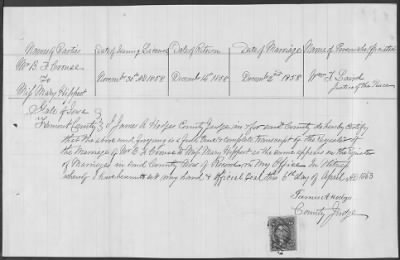 Names of Parties Date of Issuing License Date of Return Date of Marriage Name of Person who
Mr B F
To November 30th AD 1858 December 14th 1858 December 2nd 1858 Wm F Laird
Miss Mary Heppert Justice of the Peace
State of Iowa
Fremont County I James A Hodges County Judge in & for said County do hereby certify
that the above and foregoing is a full true & complete Transcript
the Marriage of Mr B F to Miss Mary Heppert as the same appears on the Register
of Marriages in said County Now of Record in My Office. In Witness
whereof I have hereunto set my hand & official seal this 6th day of April AD 1863
James A Hodges
County Judge